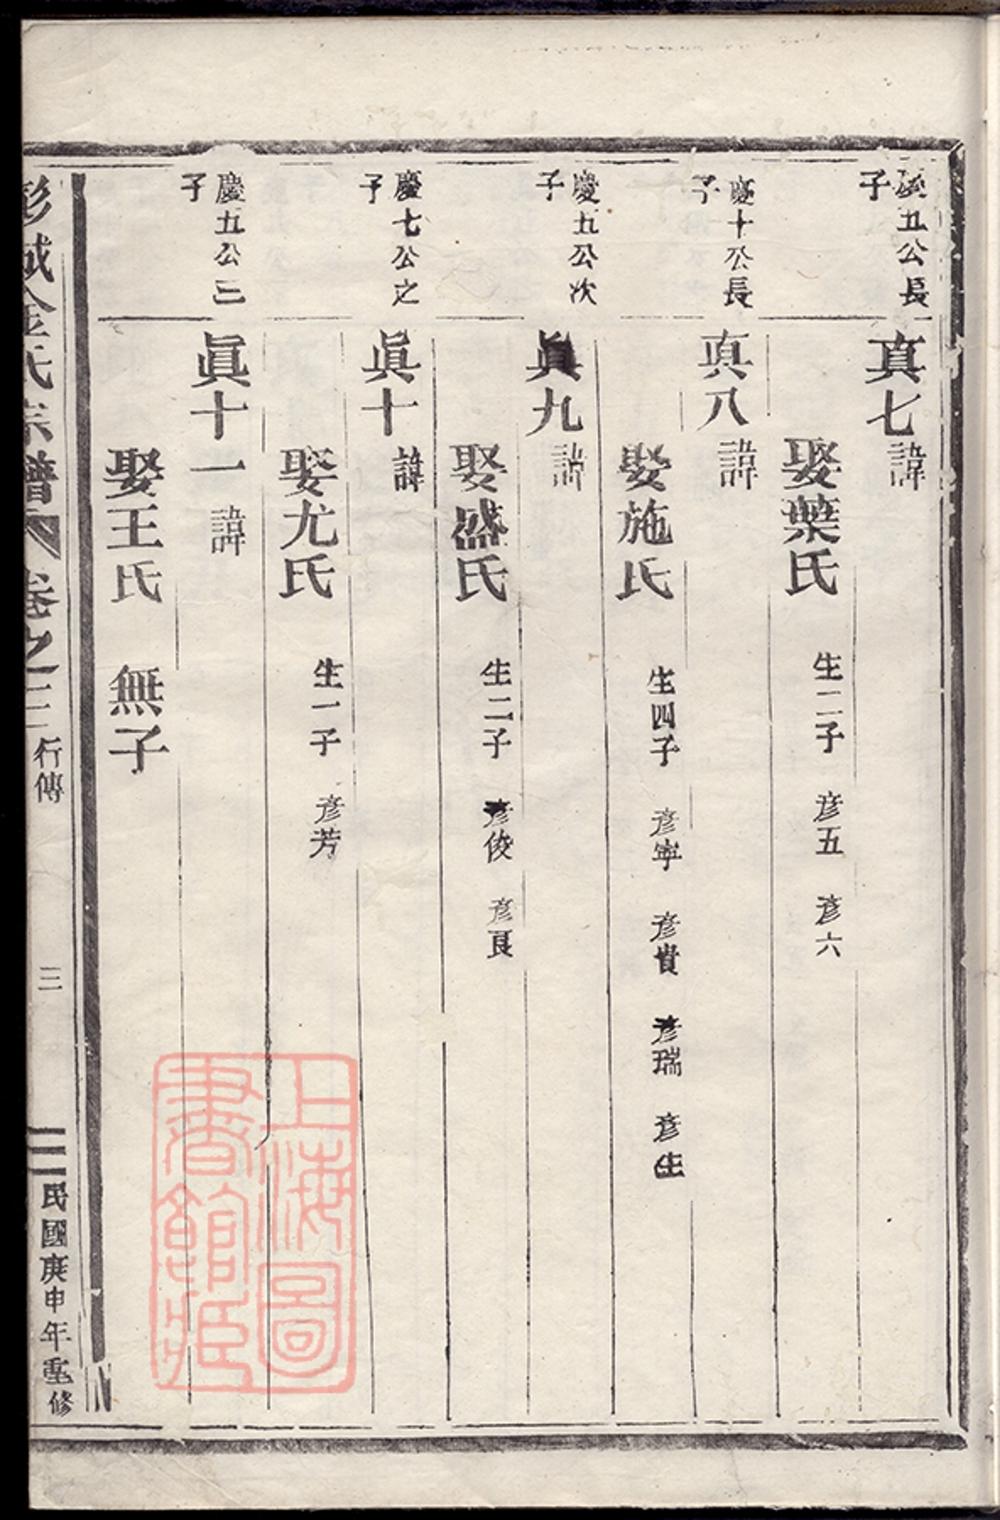 慶五公長
子
真七 諱
娶葉氏 生二子 彦五 彦六
慶十公長
子
真八 諱
娶施氏 生四子 彦寧 彦貴 彦瑞 彦生
慶五公次
子
真九 諱
娶盛氏 生二子 彦俊 彦良
慶七公之
子
眞十 諱
娶尤氏 生一子 彦芳
慶五公三
子
眞十一 諱
娶王氏 無子
彭城金氏宗譜 卷之二 行傳 三 民國庚申年重修
上海圖
書館藏